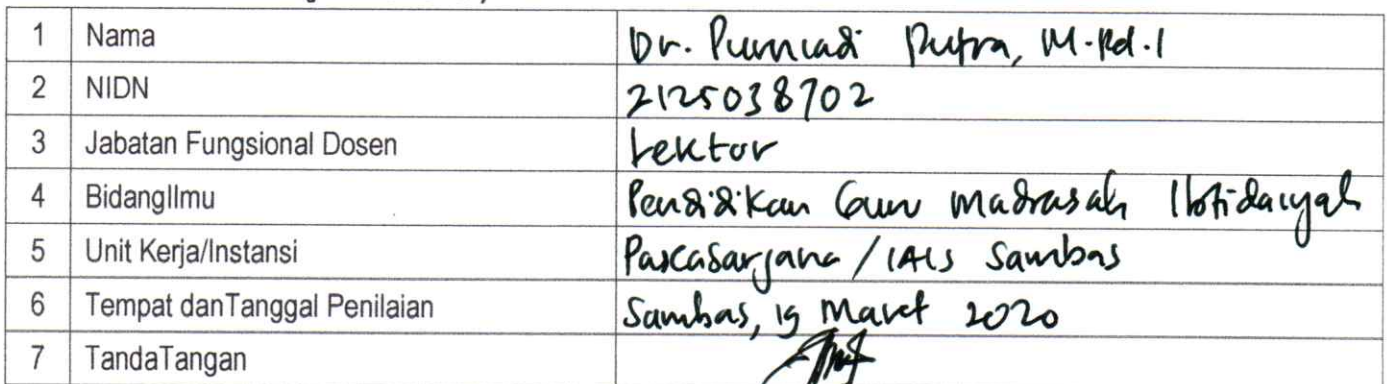 1 Nama Dr. Purniadi Putra, M.Pd.I
2 NIDN 2125038702
3 Jabatan Fungsional Dosen Lektor
4 BidangIlmu Pendidikan Guru Madrasah Ibtidaiyah
5 Unit Kerja/Instansi Pascasarjana / IAIS Sambas
6 Tempat danTanggal Penilaian Sambas, 19 Maret 2020
7 TandaTangan